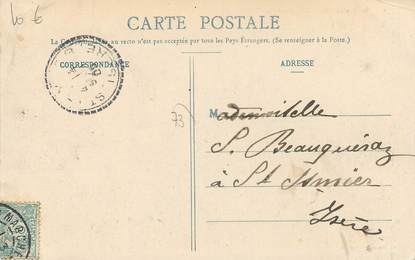 10 €
CARTE POSTALE
La Correspondance au recto n'est pas acceptée par tous les Pays Étrangers. (Se renseigner à la Poste)
CORRESPONDANCE
ADRESSE
73
Mademoiselle
S.
à St Ismier
Isère